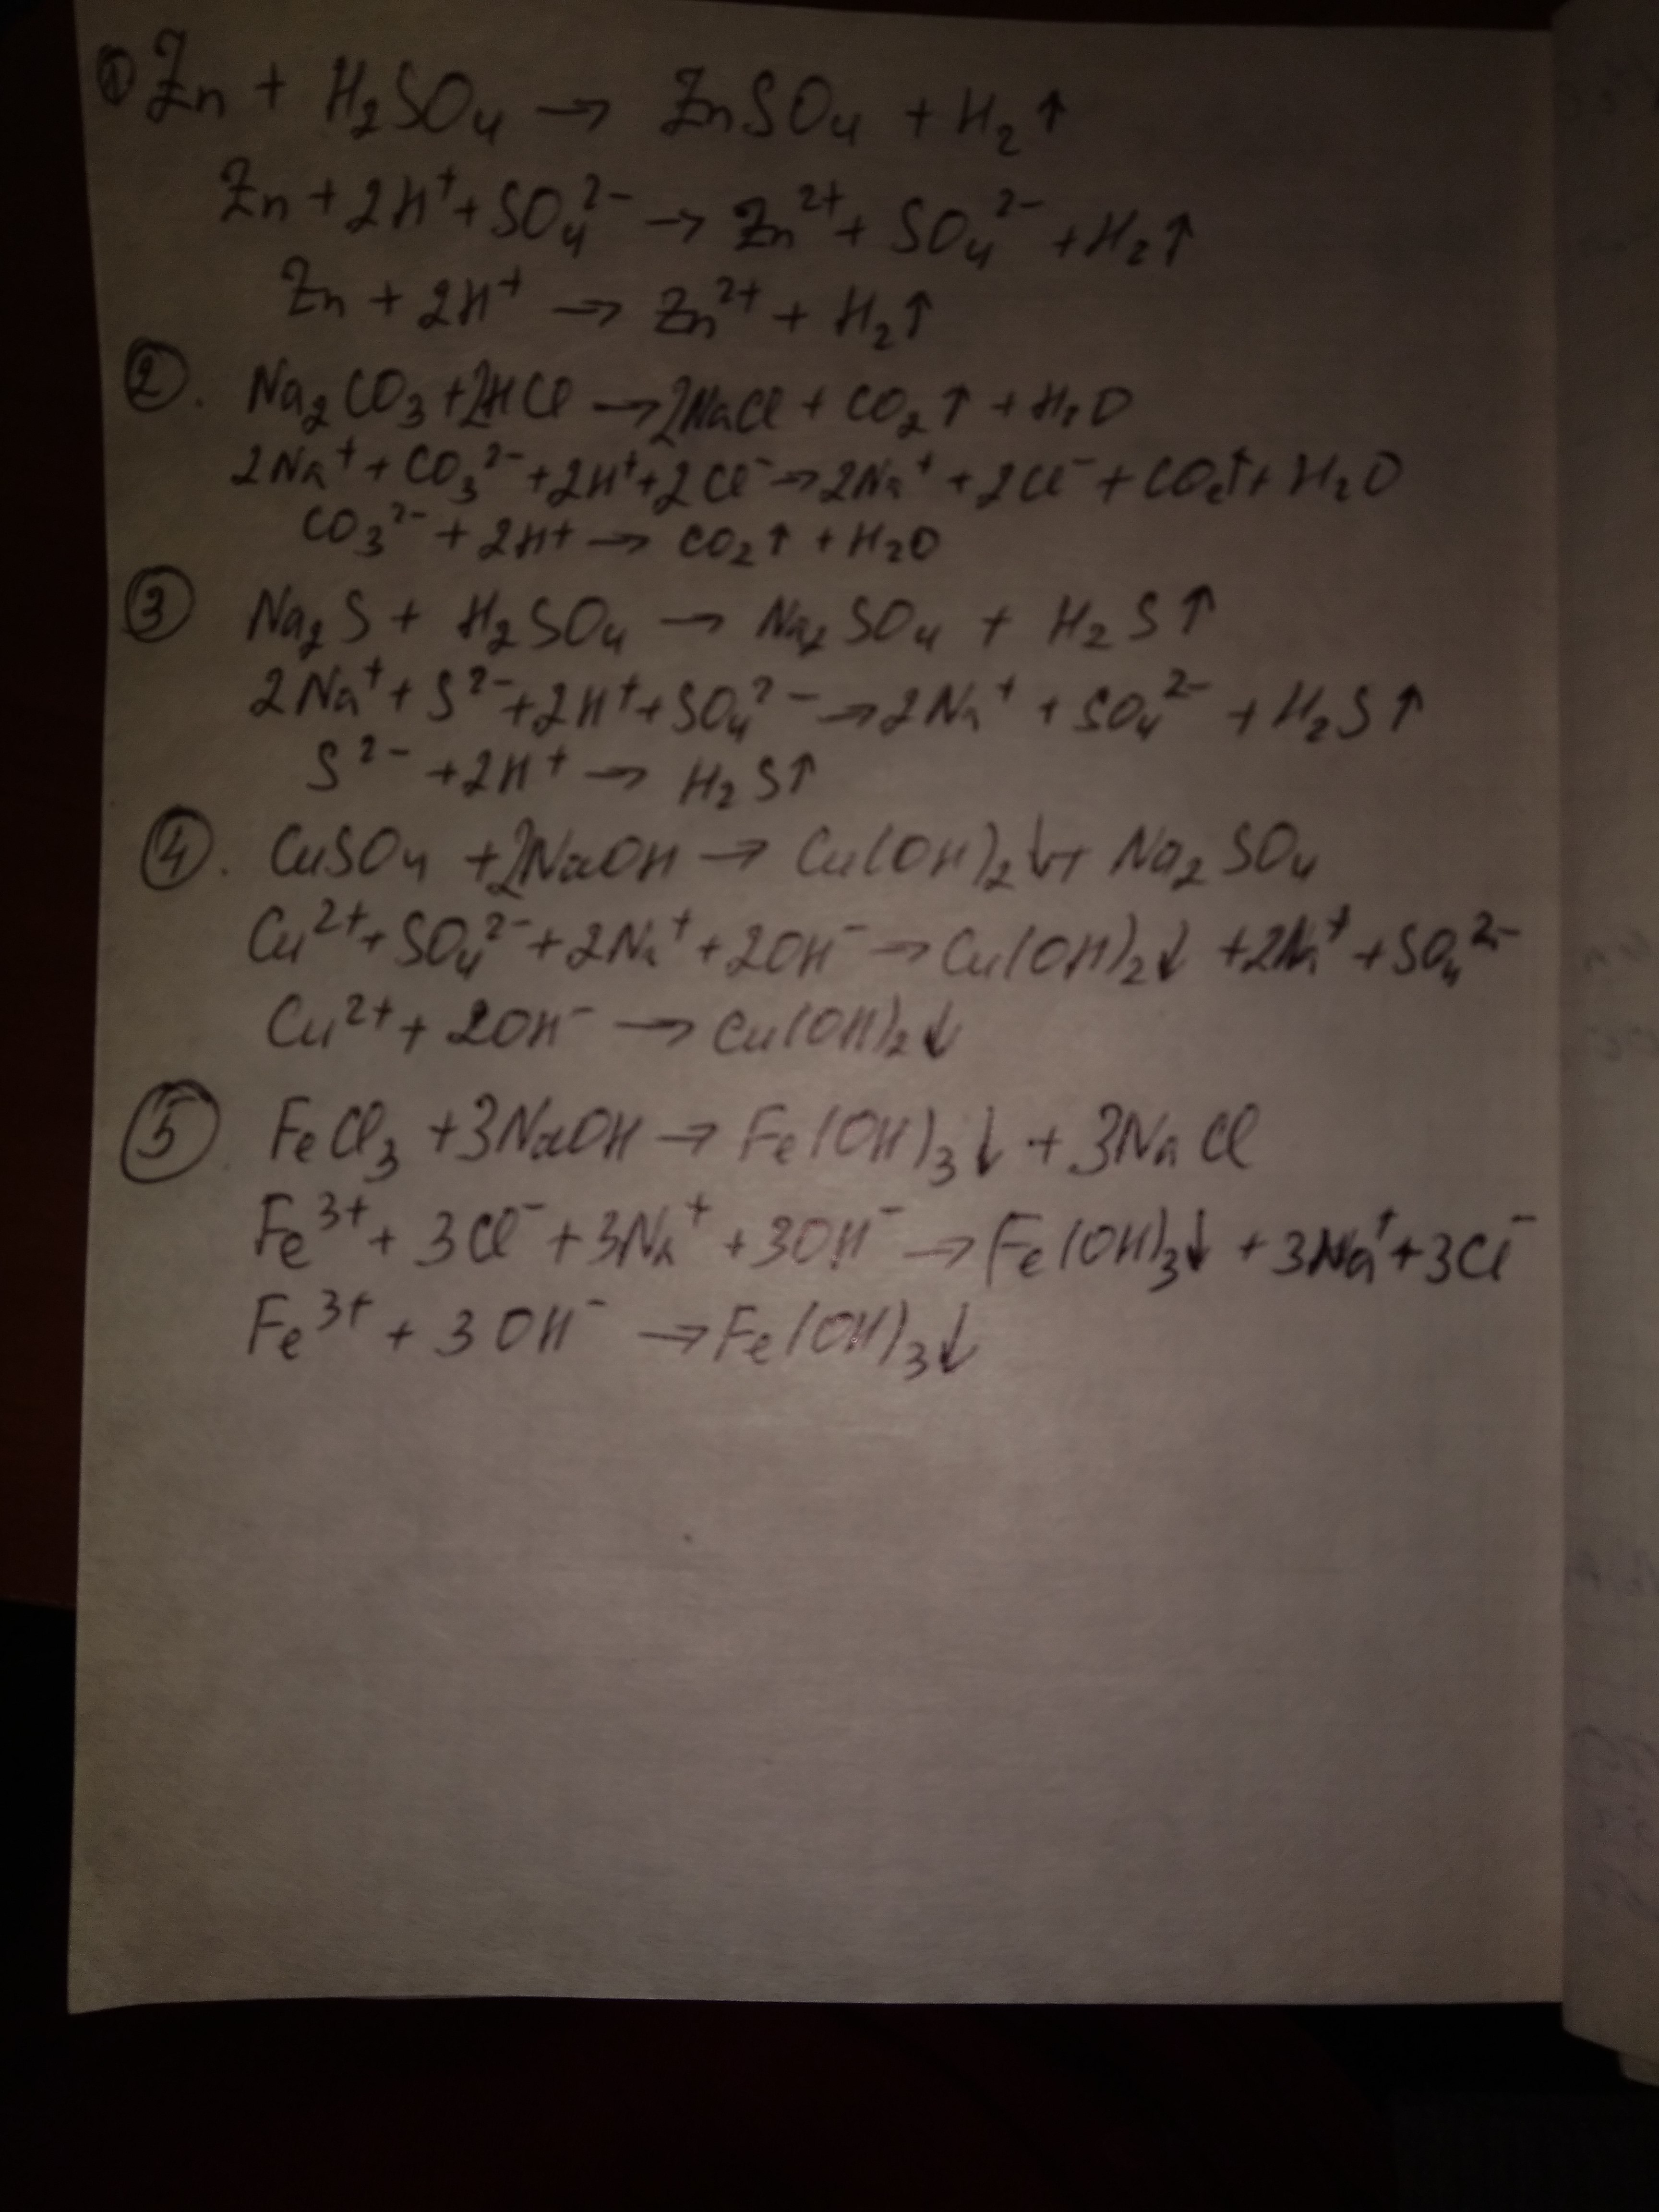 ① Zn + H₂SO₄ → ZnSO₄ + H₂↑
Zn + 2H⁺ + SO₄²⁻ → Zn²⁺ + SO₄²⁻ + H₂↑
Zn + 2H⁺ → Zn²⁺ + H₂↑
②. Na₂CO₃ + 2HCl → 2NaCl + CO₂↑ + H₂O
2Na⁺ + CO₃²⁻ + 2H⁺ + 2Cl⁻ → 2Na⁺ + 2Cl⁻ + CO₂↑ + H₂O
CO₃²⁻ + 2H⁺ → CO₂↑ + H₂O
③ Na₂S + H₂SO₄ → Na₂SO₄ + H₂S↑
2Na⁺ + S²⁻ + 2H⁺ + SO₄²⁻ → 2Na⁺ + SO₄²⁻ + H₂S↑
S²⁻ + 2H⁺ → H₂S↑
④. CuSO₄ + 2NaOH → Cu(OH)₂↓ + Na₂SO₄
Cu²⁺ + SO₄²⁻ + 2Na⁺ + 2OH⁻ → Cu(OH)₂↓ + 2Na⁺ + SO₄²⁻
Cu²⁺ + 2OH⁻ → Cu(OH)₂↓
⑤. FeCl₃ + 3NaOH → Fe(OH)₃↓ + 3NaCl
Fe³⁺ + 3Cl⁻ + 3Na⁺ + 3OH⁻ → Fe(OH)₃↓ + 3Na⁺ + 3Cl⁻
Fe³⁺ + 3OH⁻ → Fe(OH)₃↓